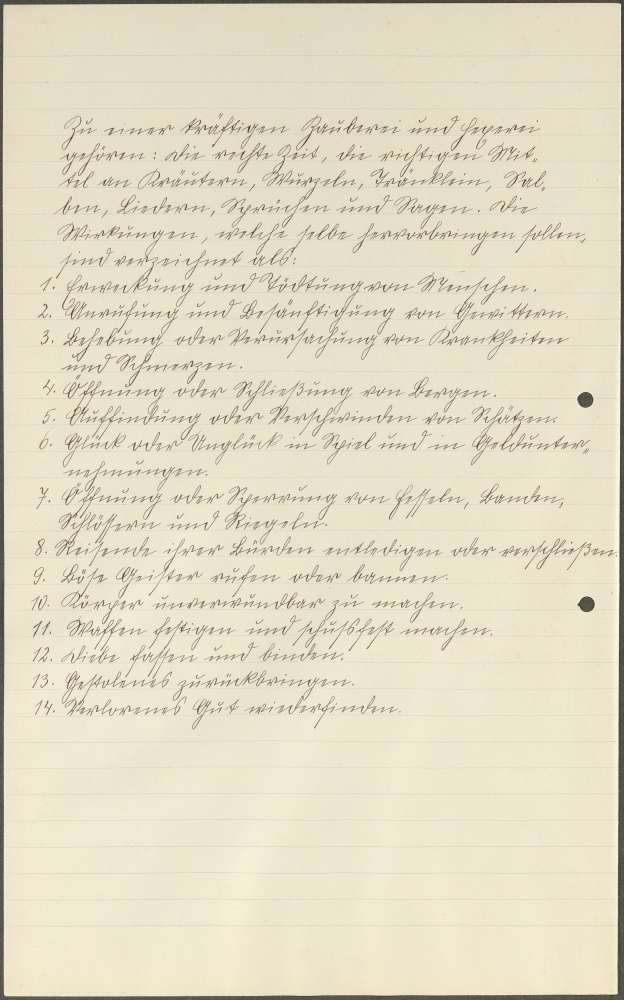 Zu einer kräftigen Zauberei und Hexerei
gehören: Die rechte Zeit, die richtigen Mit-
tel an Kräutern, Wurzeln, Tränklein, Sal-
ben, Liedern, Sprüchen und Sagen. Die
Wirkungen, welche selbe hervorbringen sollen,
sind verzeichnet als:
1. Erweckung und Tödtung von Menschen.
2. Anrufung und Besänftigung von Gewittern.
3. Behebung oder Verursachung von Krankheiten
und Schmerzen.
4. Öffnung oder Schließung von Bergen.
5. Auffindung oder Verschwinden von Schätzen.
6. Glück oder Unglück in Spiel und in Geldunter-
nehmungen.
7. Öffnung oder Sperrung von Fesseln, Banden,
Schlössern und Riegeln.
8. Reisende ihrer Bürden entledigen oder verschließen.
9. Böse Geister rufen oder bannen.
10. Körper unverwundbar zu machen.
11. Waffen festigen und schußfest machen.
12. Diebe fassen und binden.
13. Gestolenes zurückbringen.
14. Verlorenes Gut wiederfinden.